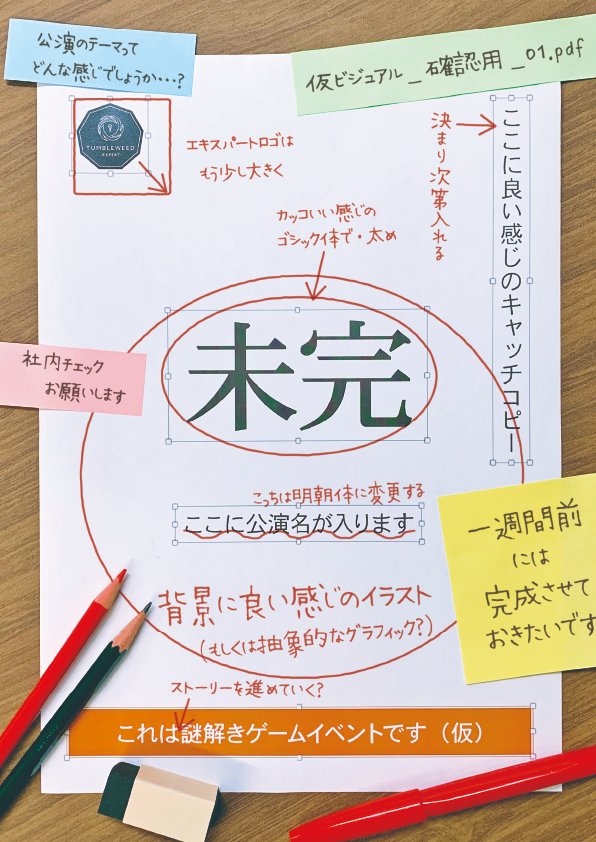 公演のテーマって
どんな感じでしょうか・・・?
仮ビジュアル_確認用_01.pdf
TUMBLEWEED
EXPERT
エキスパートロゴは
もう少し大きく
決まり次第入れる
ここに良い感じのキャッチコピー
カッコいい感じの
ゴシック体で・太め
未完
社内チェック
お願いします
こっちは明朝体に変更する
ここに公演名が入ります
一週間前
には
完成させて
おきたいです
背景に良い感じのイラスト
(もしくは抽象的なグラフィック?)
ストーリーを進めていく?
これは謎解きゲームイベントです(仮)